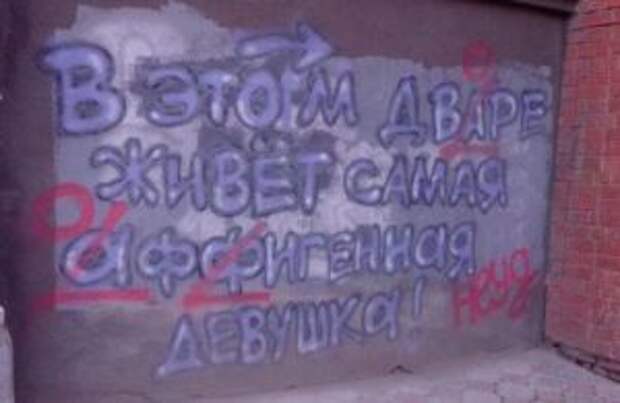 В ЭТОМ ДВАРЕ
ЖИВЁТ САМАЯ
аффигенная
ДЕВУШКа!
неуд